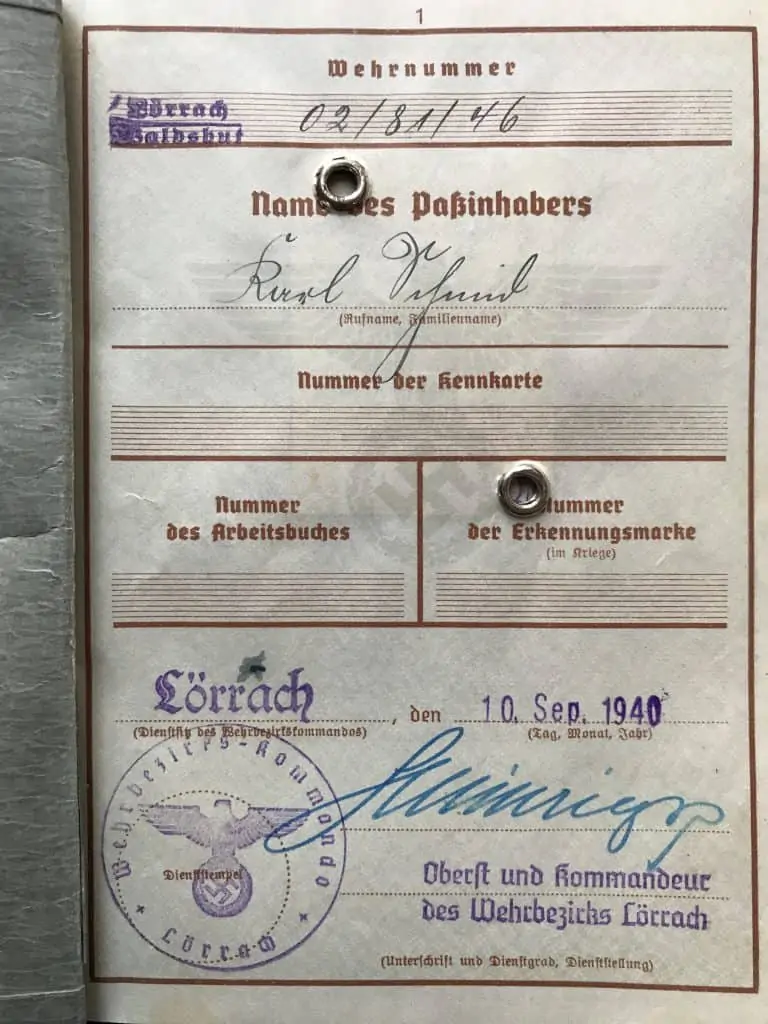 1
Wehrnummer
Lörrach
Waldshut
02/81/46
Name des Paßinhabers
Karl Schmid
(Rufname, Familienname)
Nummer der Kennkarte
Nummer
des Arbeitsbuches
Nummer
der Erkennungsmarke
(im Kriege)
Lörrach, den 10. Sep. 1940
(Dienstsitz des Wehrbezirkskommandos) (Tag, Monat, Jahr)
Wehrbezirks-Kommando
Dienststempel
Lörrach
Oberst und Kommandeur
des Wehrbezirks Lörrach
(Unterschrift und Dienstgrad, Dienststellung)